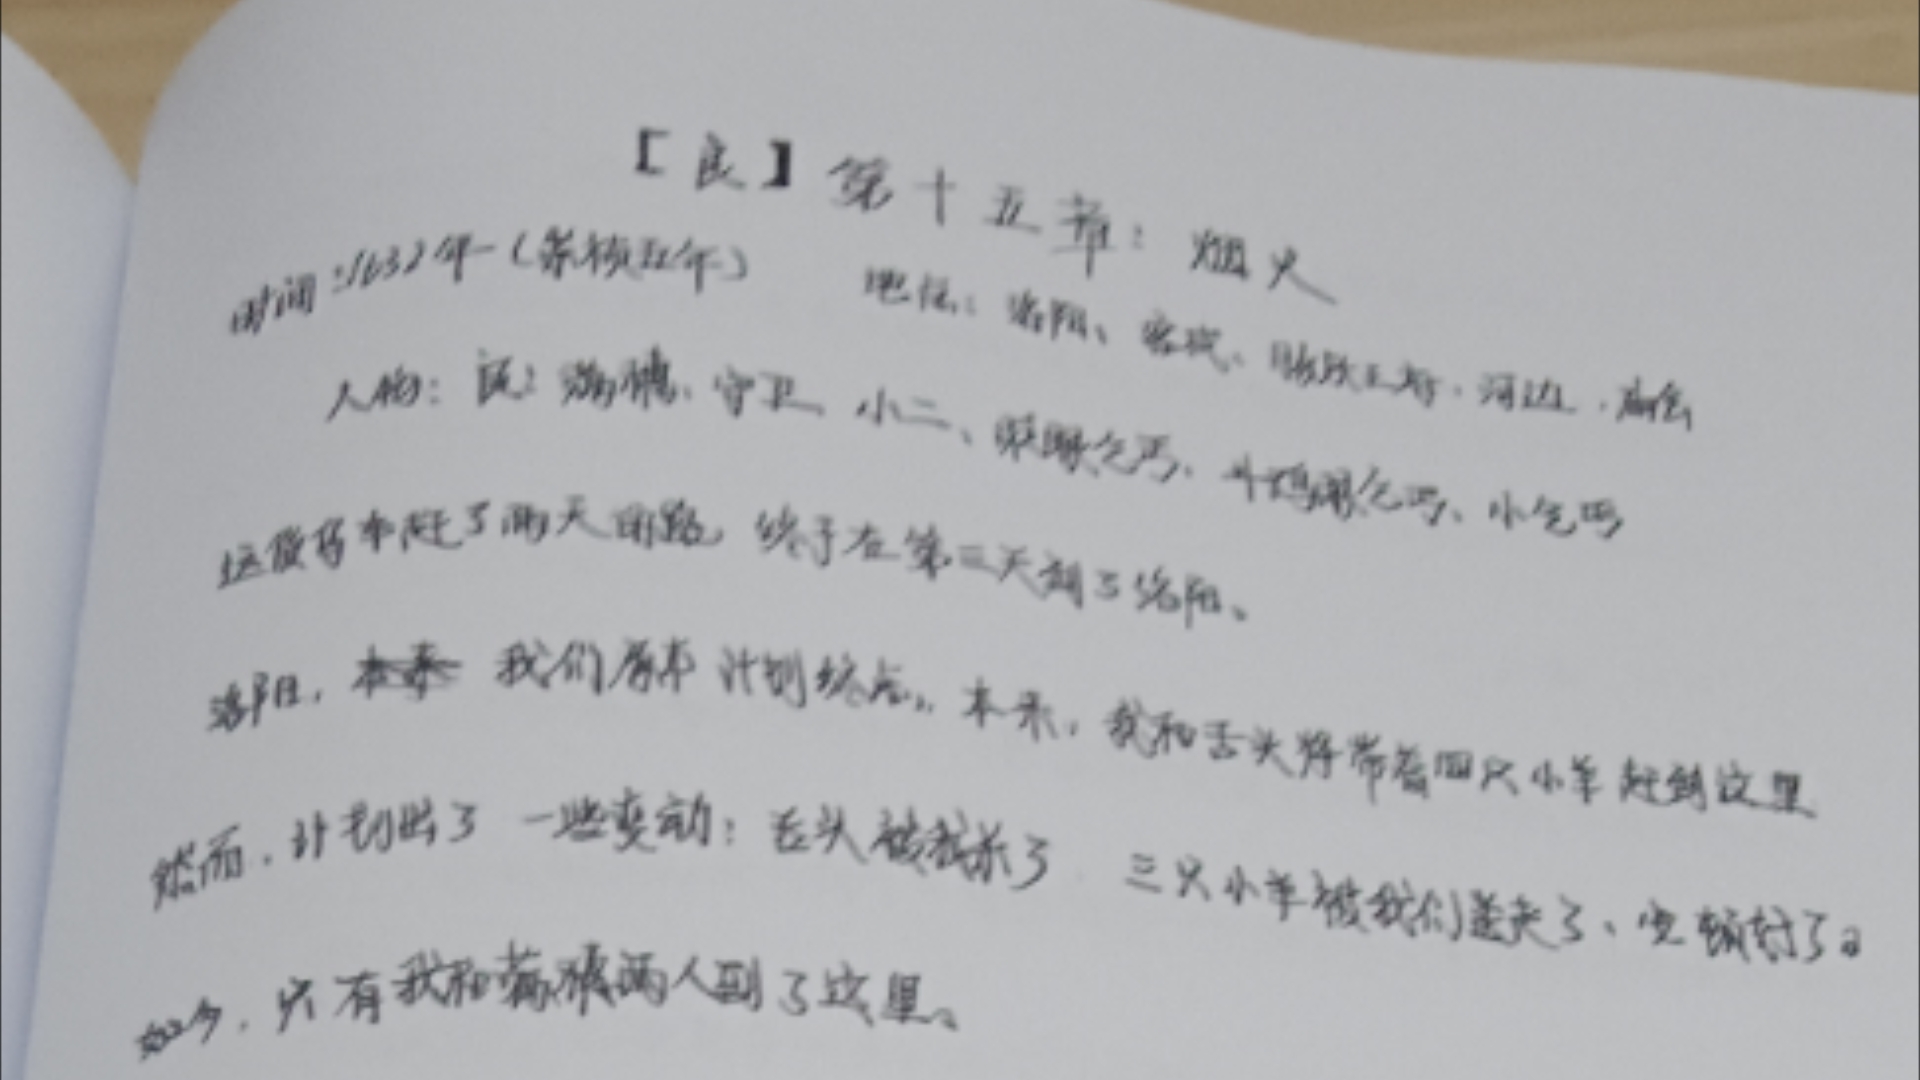 【良】第十五章：烟火
时间：1632年（崇祯五年） 地点：洛阳、客栈、豚妖王府、河边、庙会
人物：良、满穗、守卫、小二、眯眼乞丐、斗鸡眼乞丐、小乞丐
运假药车赶了两天的路，终于在第三天到了洛阳。
洛阳，我们原本计划终点。本来，我和舌头将带着四只小羊赶到这里
然而，计划出了一些变动：舌头被我杀了 三只小羊被我们送走了、安顿好了。
如今，只有我和满穗两人到了这里。